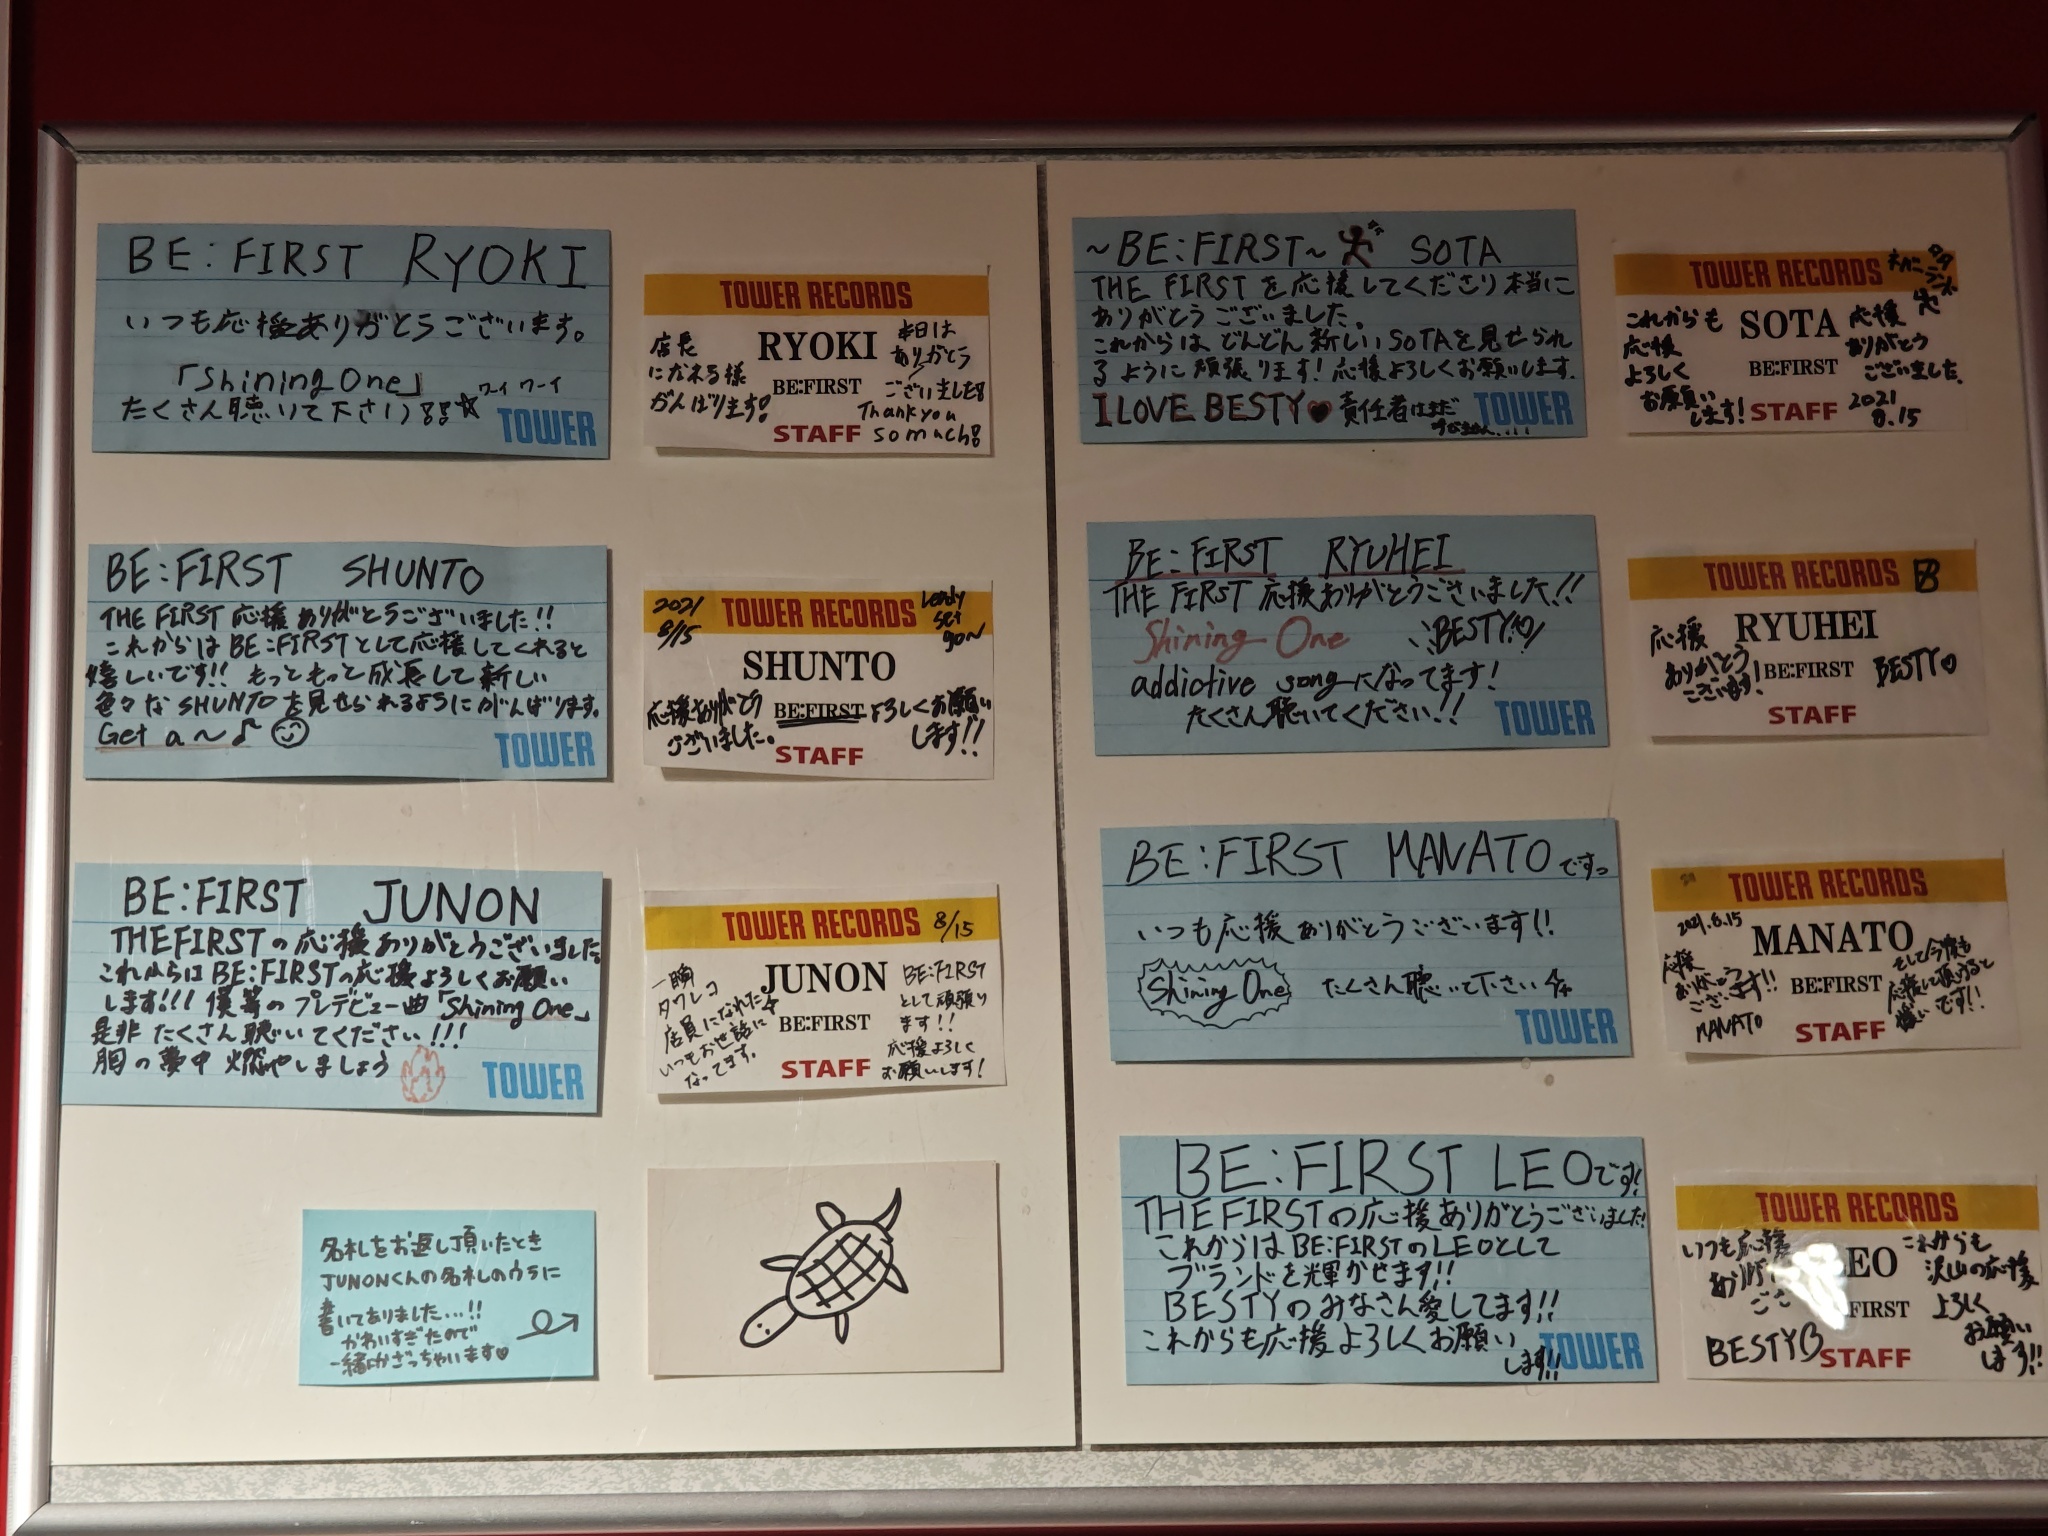 BE:FIRST RYOKI
いつも応援ありがとうございます。
「Shining One」
たくさん聴いて下さい)!!☆ワイワーイ
TOWER
TOWER RECORDS
RYOKI
BE:FIRST
STAFF
店長
になれる様
がんばります!
本日は
ありがとう
ございました!
Thank you
so much!
BE:FIRST SHUNTO
THE FIRST 応援ありがとうございました!!
これからは BE:FIRSTとして応援してくれると
嬉しいです!! もっともっと成長して新しい
色々な SHUNTO を見せられるようにがんばります。
Get a〜♪
TOWER
2021
8/15
TOWER RECORDS
Ready
set
go~
SHUNTO
BE:FIRST
STAFF
応援ありがとう
ございました。
よろしくお願い
します!!
BE:FIRST JUNON
THE FIRSTの応援ありがとうございました。
これからはBE:FIRSTの応援よろしくお願い
します!!! 僕等のプレデビュー曲「Shining One」
是非たくさん聴いてください!!!
胸の夢中燃やしましょう
TOWER
TOWER RECORDS 8/15
JUNON
BE:FIRST
STAFF
一瞬
タワレコ
店員になれた
いつもお世話に
なってます。
BE:FIRST
として頑張り
ます!!
応援よろしく
お願いします!
名札をお返し頂いたとき
JUNONくんの名札のウラに
書いてありました...!!
かわいすぎたので
一緒にかざっちゃいます♡
~BE:FIRST~ SOTA
THE FIRSTを応援してくださり本当に
ありがとうございました。
これからはどんどん新しいSOTAを見せられ
るように頑張ります!応援よろしくお願いします。
I LOVE BESTY♥責任者はまだ
TOWER
TOWER RECORDS
SOTA
BE:FIRST
STAFF
これからも
応援
よろしく
お願い
します!
応援
ありがとう
ございました。
2021
8.15
BE:FIRST RYUHEI
THE FIRST 応援ありがとうございました!!
Shining One BESTY♡
addictive songになってます!
たくさん聴いてください!!
TOWER
TOWER RECORDS B
RYUHEI
BE:FIRST
STAFF
応援
ありがとう
ございます!
BESTY♡
BE:FIRST MANATOですっ
いつも応援ありがとうございます!!
Shining One たくさん聴いて下さい
TOWER
TOWER RECORDS
2021.8.15
MANATO
BE:FIRST
STAFF
応援
ありがとう
ございます!!
MANATO
そして今後も
応援して頂けると
嬉しいです!!
BE:FIRST LEOです!
THE FIRSTの応援ありがとうございました!
これからはBE:FIRSTのLEOとして
ブランドを輝かせます!!
BESTYのみなさん愛してます!!
これからも応援よろしくお願い
します!!
TOWER
TOWER RECORDS
EO
FIRST
STAFF
いつも応援
BESTY
これからも
沢山の応援
よろしく
お願い
します!!